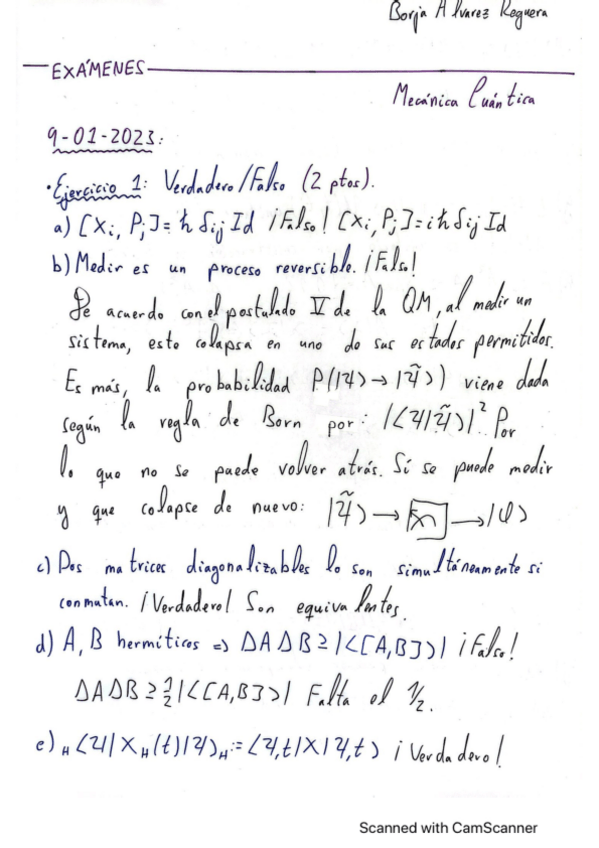 Borja Alvarez Reguera
EXÁMENES
Mecánica Cuántica
9-01-2023:
·Ejercicio 1: Verdadero/Falso (2 ptos).
a) [Xi, Pj]=ħ δij Id ¡Falso! [Xi, Pj]=iħ δij Id
b) Medir es un proceso reversible. ¡Falso!
De acuerdo con el postulado V de la QM, al medir un
sistema, este colapsa en uno de sus estados permitidos.
Es más, la probabilidad P(|ψ⟩→|ψ̃⟩) viene dada
según la regla de Born por: |⟨ψ|ψ̃⟩|². Por
lo que no se puede volver atrás. Sí se puede medir
y que colapse de nuevo: |ψ̃⟩→ →|φ⟩
c) Dos matrices diagonalizables lo son simultáneamente si
conmutan. ¡Verdadero! Son equivalentes.
d) A, B hermíticos => ΔAΔB≥|<[A,B]>| ¡Falso!
ΔAΔB≥½|<[A,B]>| Falta el 1/2.
e) H⟨ψ|X_H(t)|ψ⟩H=⟨ψ,t|X|ψ,t⟩ ¡Verdadero!
Scanned with CamScanner